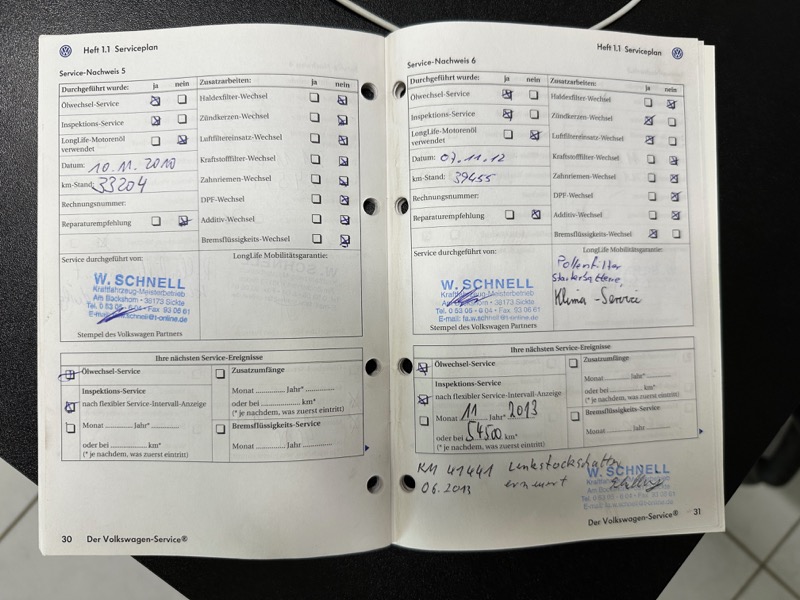 Heft 1.1 Serviceplan
Service-Nachweis 5
Durchgeführt wurde: ja nein
Ölwechsel-Service
Inspektions-Service
LongLife-Motorenöl
verwendet
Datum: 10.11.2010
km-Stand: 33204
Rechnungsnummer:
Reparaturempfehlung
Zusatzarbeiten: ja nein
Haldexfilter-Wechsel
Zündkerzen-Wechsel
Luftfiltereinsatz-Wechsel
Kraftstofffilter-Wechsel
Zahnriemen-Wechsel
DPF-Wechsel
Additiv-Wechsel
Bremsflüssigkeits-Wechsel
Service durchgeführt von:
LongLife Mobilitätsgarantie:
W. SCHNELL
Kraftfahrzeug-Meisterbetrieb
Am Backshorn · 38173 Sickte
Tel. 0 53 05 - 6 04 · Fax 93 06 61
Stempel des Volkswagen Partners
Ihre nächsten Service-Ereignisse
Ölwechsel-Service
Inspektions-Service
nach flexibler Service-Intervall-Anzeige
Monat ............ Jahr* ............
oder bei ............ km*
(* je nachdem, was zuerst eintritt)
Zusatzumfänge
Monat ............ Jahr* ............
oder bei ............ km*
(* je nachdem, was zuerst eintritt)
Bremsflüssigkeits-Service
Monat ............ Jahr ............
30 Der Volkswagen-Service®
Heft 1.1 Serviceplan
Service-Nachweis 6
Durchgeführt wurde: ja nein
Ölwechsel-Service
Inspektions-Service
LongLife-Motorenöl
verwendet
Datum: 07.11.12
km-Stand: 39455
Rechnungsnummer:
Reparaturempfehlung
Zusatzarbeiten: ja nein
Haldexfilter-Wechsel
Zündkerzen-Wechsel
Luftfiltereinsatz-Wechsel
Kraftstofffilter-Wechsel
Zahnriemen-Wechsel
DPF-Wechsel
Additiv-Wechsel
Bremsflüssigkeits-Wechsel
Service durchgeführt von:
LongLife Mobilitätsgarantie:
Pollenfilter
Starterbatterie,
Klima-Service
W. SCHNELL
Kraftfahrzeug-Meisterbetrieb
Am Backshorn · 38173 Sickte
Tel. 0 53 05 - 6 04 · Fax 93 06 61
E-mail: fa.w.schnell@t-online.de
Stempel des Volkswagen Partners
Ihre nächsten Service-Ereignisse
Ölwechsel-Service
Inspektions-Service
nach flexibler Service-Intervall-Anzeige
Monat 11 Jahr* 2013
oder bei 54500 km*
(* je nachdem, was zuerst eintritt)
Zusatzumfänge
Monat ............ Jahr* ............
oder bei ............ km*
(* je nachdem, was zuerst eintritt)
Bremsflüssigkeits-Service
Monat ............ Jahr ............
KM 41441 Lenkstockschalter
06.2013 erneuert
W. SCHNELL
Der Volkswagen-Service® 31